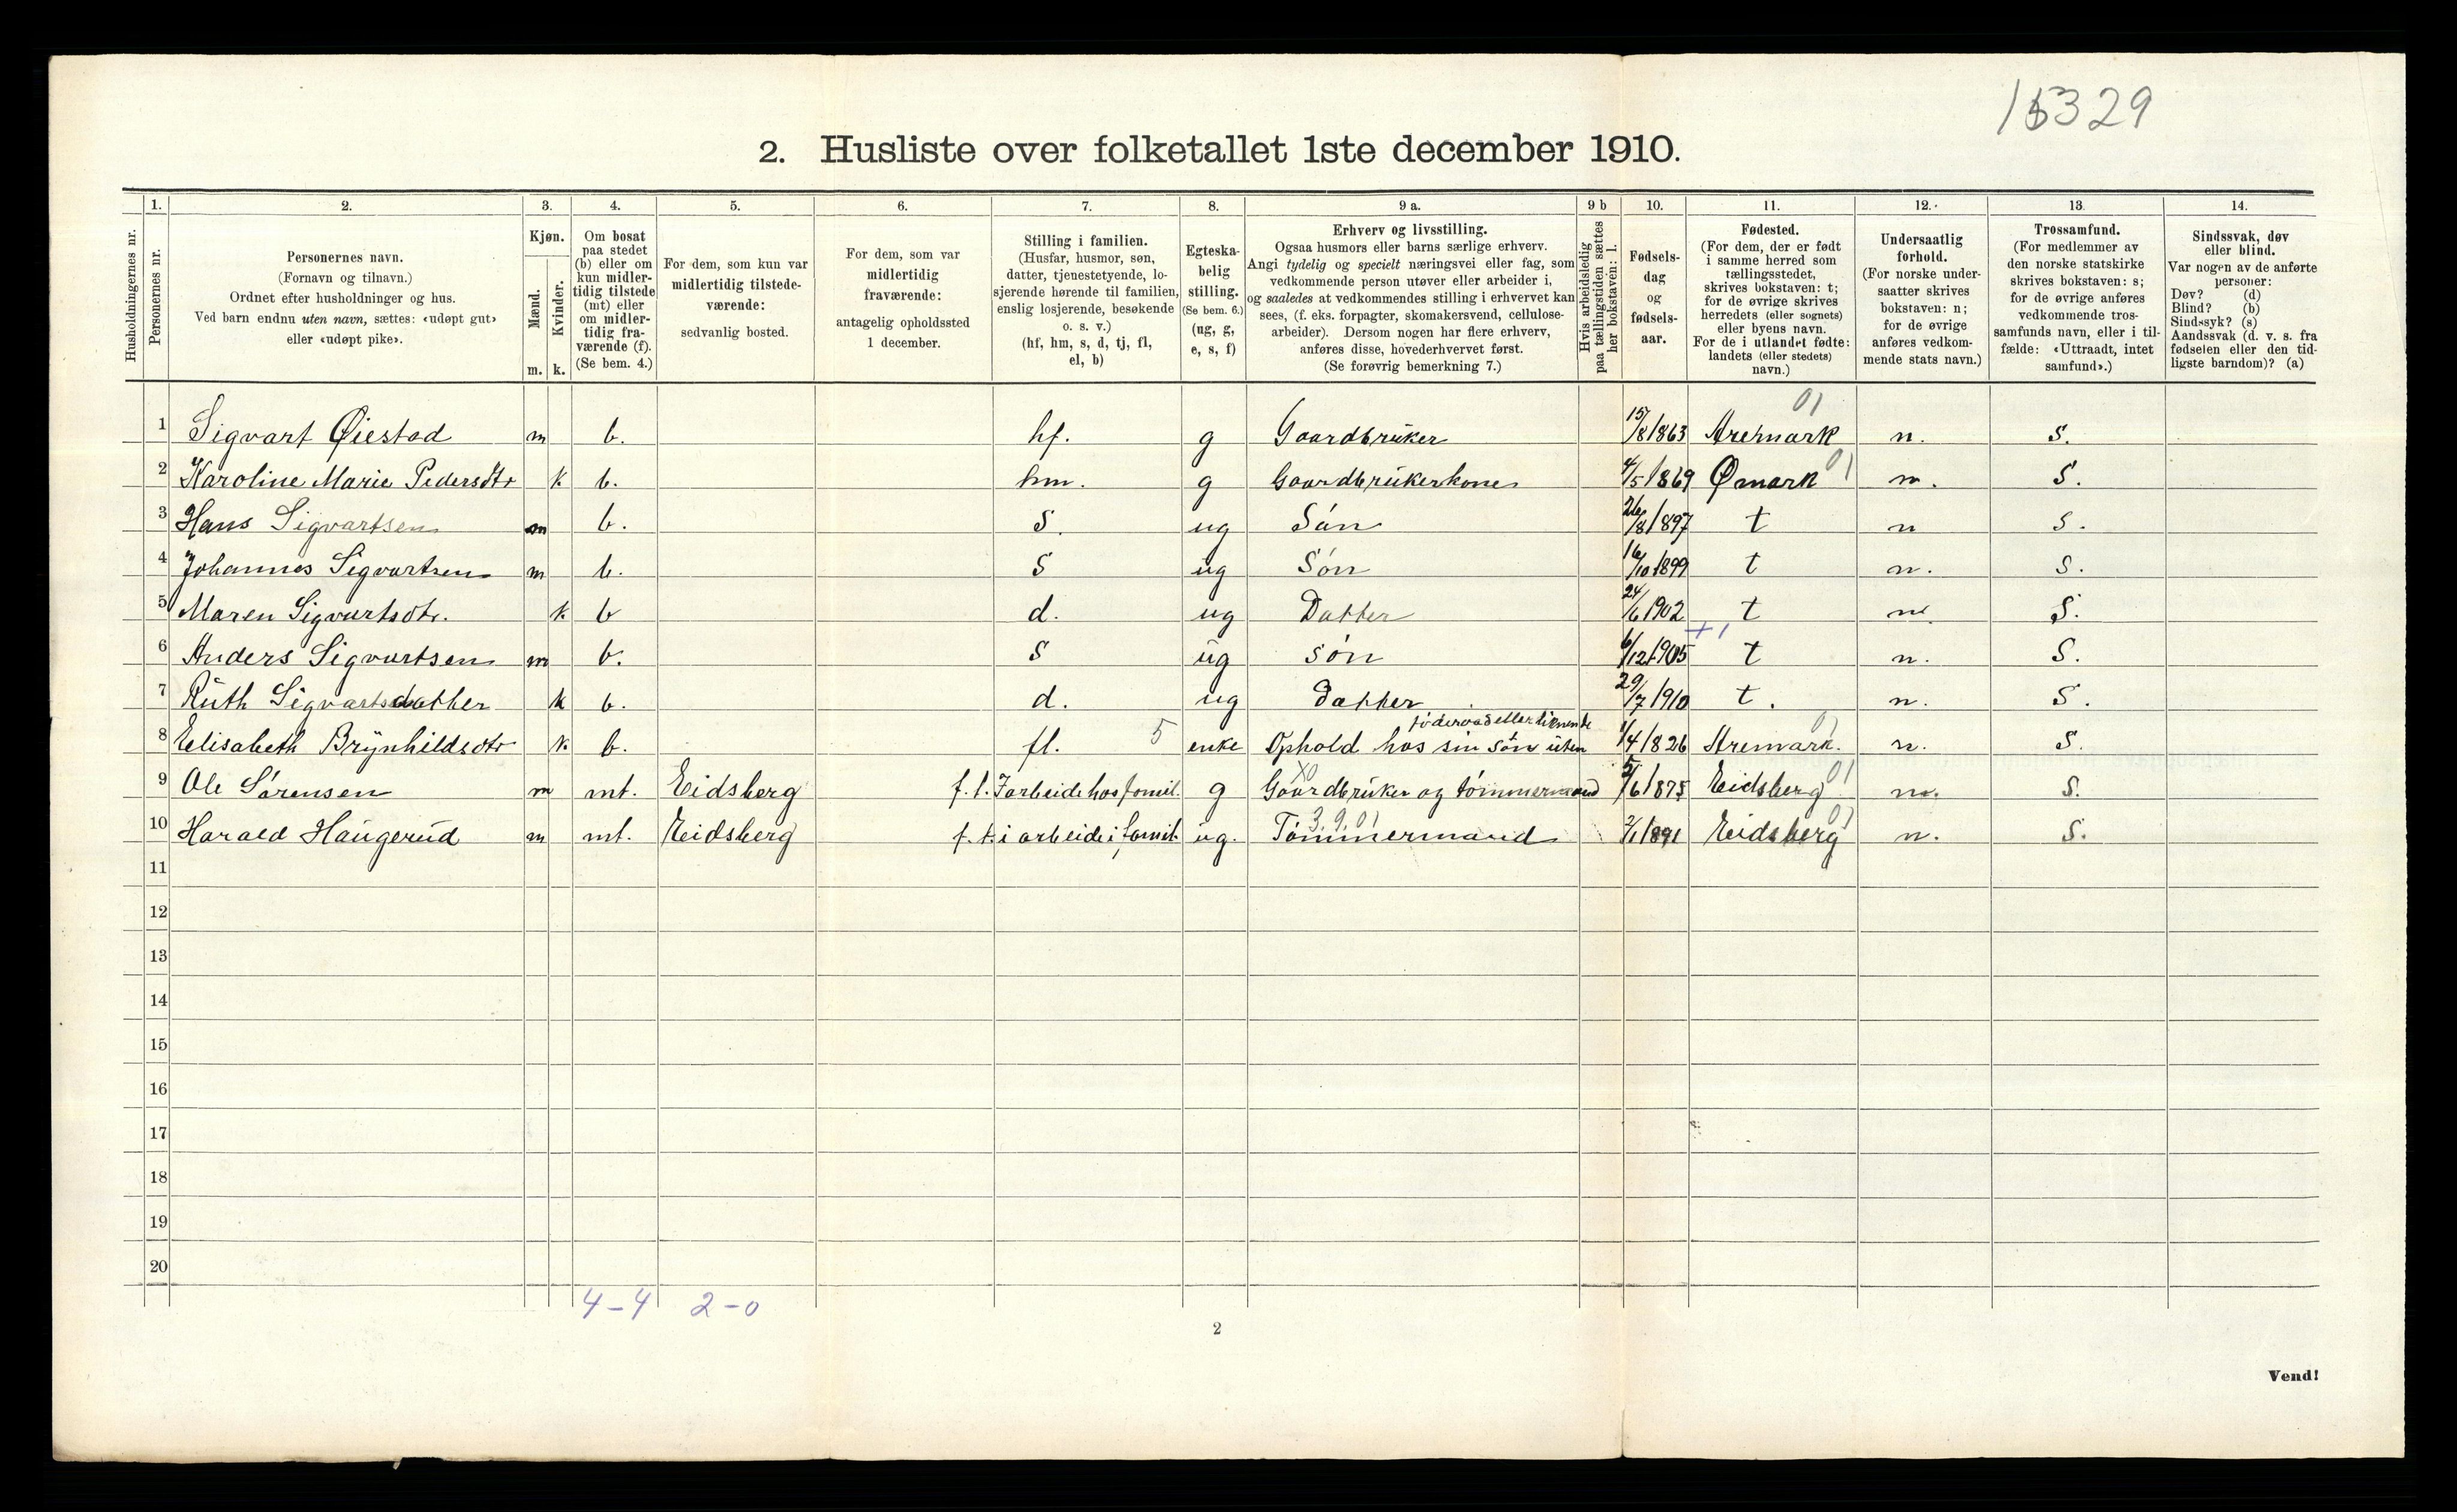 15329
2. Husliste over folketallet 1ste december 1910.
1. 2. 3. 4. 5. 6. 7. 8. 9 a. 9 b 10. 11. 12. 13. 14.
Husholdningernes nr.
Personernes nr.
Personernes navn.
(Fornavn og tilnavn.)
Ordnet efter husholdninger og hus.
Ved barn endnu uten navn, sættes: «udøpt gut»
eller «udøpt pike».
Kjøn.
Mænd.
Kvinder.
m. k.
Om bosat
paa stedet
(b) eller om
kun midler-
tidig tilstede
(mt) eller
om midler-
tidig fra-
værende (f).
(Se bem. 4.)
For dem, som kun var
midlertidig tilstede-
værende:
sedvanlig bosted.
For dem, som var
midlertidig
fraværende:
antagelig opholdssted
1 december.
Stilling i familien.
(Husfar, husmor, søn,
datter, tjenestetyende, lo-
sjerende hørende til familien,
enslig losjerende, besøkende
o. s. v.)
(hf, hm, s, d, tj, fl,
el, b)
Egteska-
belig
stilling.
(Se bem. 6.)
(ug, g,
e, s, f)
Erhverv og livsstilling.
Ogsaa husmors eller barns særlige erhverv.
Angi tydelig og specielt næringsvei eller fag, som
vedkommende person utøver eller arbeider i,
og saaledes at vedkommendes stilling i erhvervet kan
sees, (f. eks. forpagter, skomakersvend, cellulose-
arbeider). Dersom nogen har flere erhverv,
anføres disse, hovederhvervet først.
(Se forøvrig bemerkning 7.)
Hvis arbeidsledig
paa tællingstiden sættes
her bokstaven: l.
Fødsels-
dag
og
fødsels-
aar.
Fødested.
(For dem, der er født
i samme herred som
tællingsstedet,
skrives bokstaven: t;
for de øvrige skrives
herredets (eller sognets)
eller byens navn.
For de i utlandet fødte:
landets (eller stedets)
navn.)
Undersaatlig
forhold.
(For norske under-
saatter skrives
bokstaven: n;
for de øvrige
anføres vedkom-
mende stats navn.)
Trossamfund.
(For medlemmer av
den norske statskirke
skrives bokstaven: s;
for de øvrige anføres
vedkommende tros-
samfunds navn, eller i til-
fælde: «Uttraadt, intet
samfund».)
Sindssvak, døv
eller blind.
Var nogen av de anførte
personer:
Døv? (d)
Blind? (b)
Sindssyk? (s)
Aandssvak (d. v. s. fra
fødselen eller den tid-
ligste barndom)? (a)
01
1 Sigvart Øiestad m b. hf. g Gaardbruker 15/8 1863 Aremark n. S.
2 Karoline Marie Pedersdtr k b. hm. g Gaardbrukerkone 4/5 1869 Ømark 01 n. S.
3 Hans Sigvartsen m b. S. ug Sön 26/8 1897 t n S.
4 Johannes Sigvartsen m b. S ug Sön 16/10 1899 t n. S.
5 Maren Sigvartsdtr. k b d. ug Datter 24/6 1902 t n. S.
6 Anders Sigvartsen m b. S ug sön 6/12 1905 t n. S.
7 Ruth Sigvartsdatter k b. d. ug Datter 29/7 1910 t. n. S.
föderaad eller lienende
8 Eelisabeth Brynhildsdtr k b. fl. 5 enke Ophold hos sin sön uten 1/4 1826 Aremark. 01 n. S.
9 Ole Sörensen m mt. Eidsberg f.t. I arbeide hos famil. g Gaardbruker og tömmermand 5/6 1875 Eidsberg 01 n. S.
3.9.01
10 Harald Haugerud m mt. Eidsberg f.t. i arbeide i famil. ug. Tömmermand 2/1 1891 Eidsberg 01 n. S.
11
12
13
14
15
16
17
18
19
20
4-4 2-0
2
Vend!